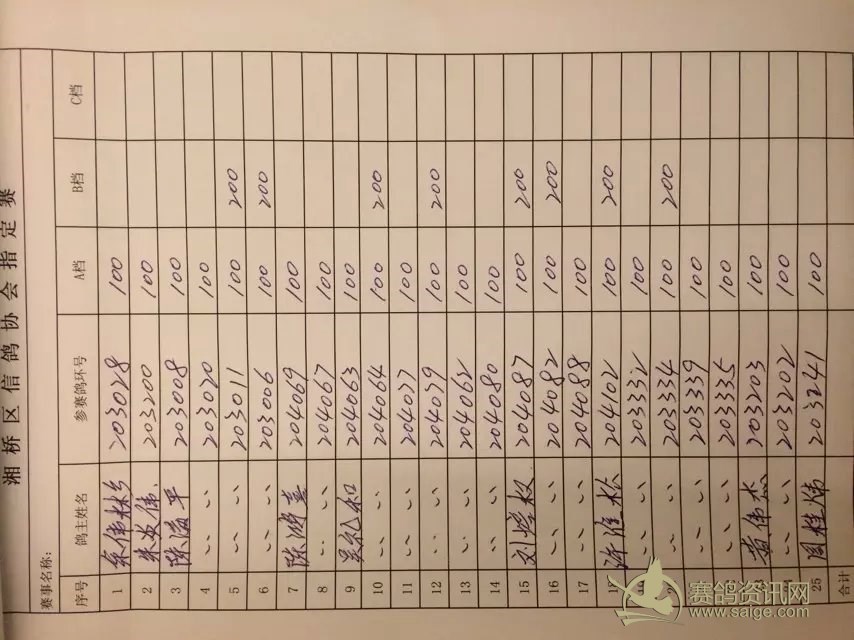 湘桥区信鸽协会指定赛
赛事名称：
序号 鸽主姓名 参赛鸽环号 A档 B档 C档
1 203028 100
2 203200 100
3 203008 100
4 〃 203020 100
5 〃 203011 100 200
6 〃 203006 100 200
7 204069 100
8 〃 204067 100
9 吴礼和 204063 100
10 〃 204064 100 200
11 〃 204077 100
12 〃 204079 100 200
13 〃 204062 100
14 〃 204080 100
15 204087 100 200
16 〃 204082 100 200
17 〃 204088 100
204102 100 200
〃 203332 100
〃 203334 100 200
〃 203339 100
〃 203335 100
黄伟杰 203203 100
〃 203202 100
25 周桂伟 203241 100
合计
赛鸽资讯网
www.saige.com